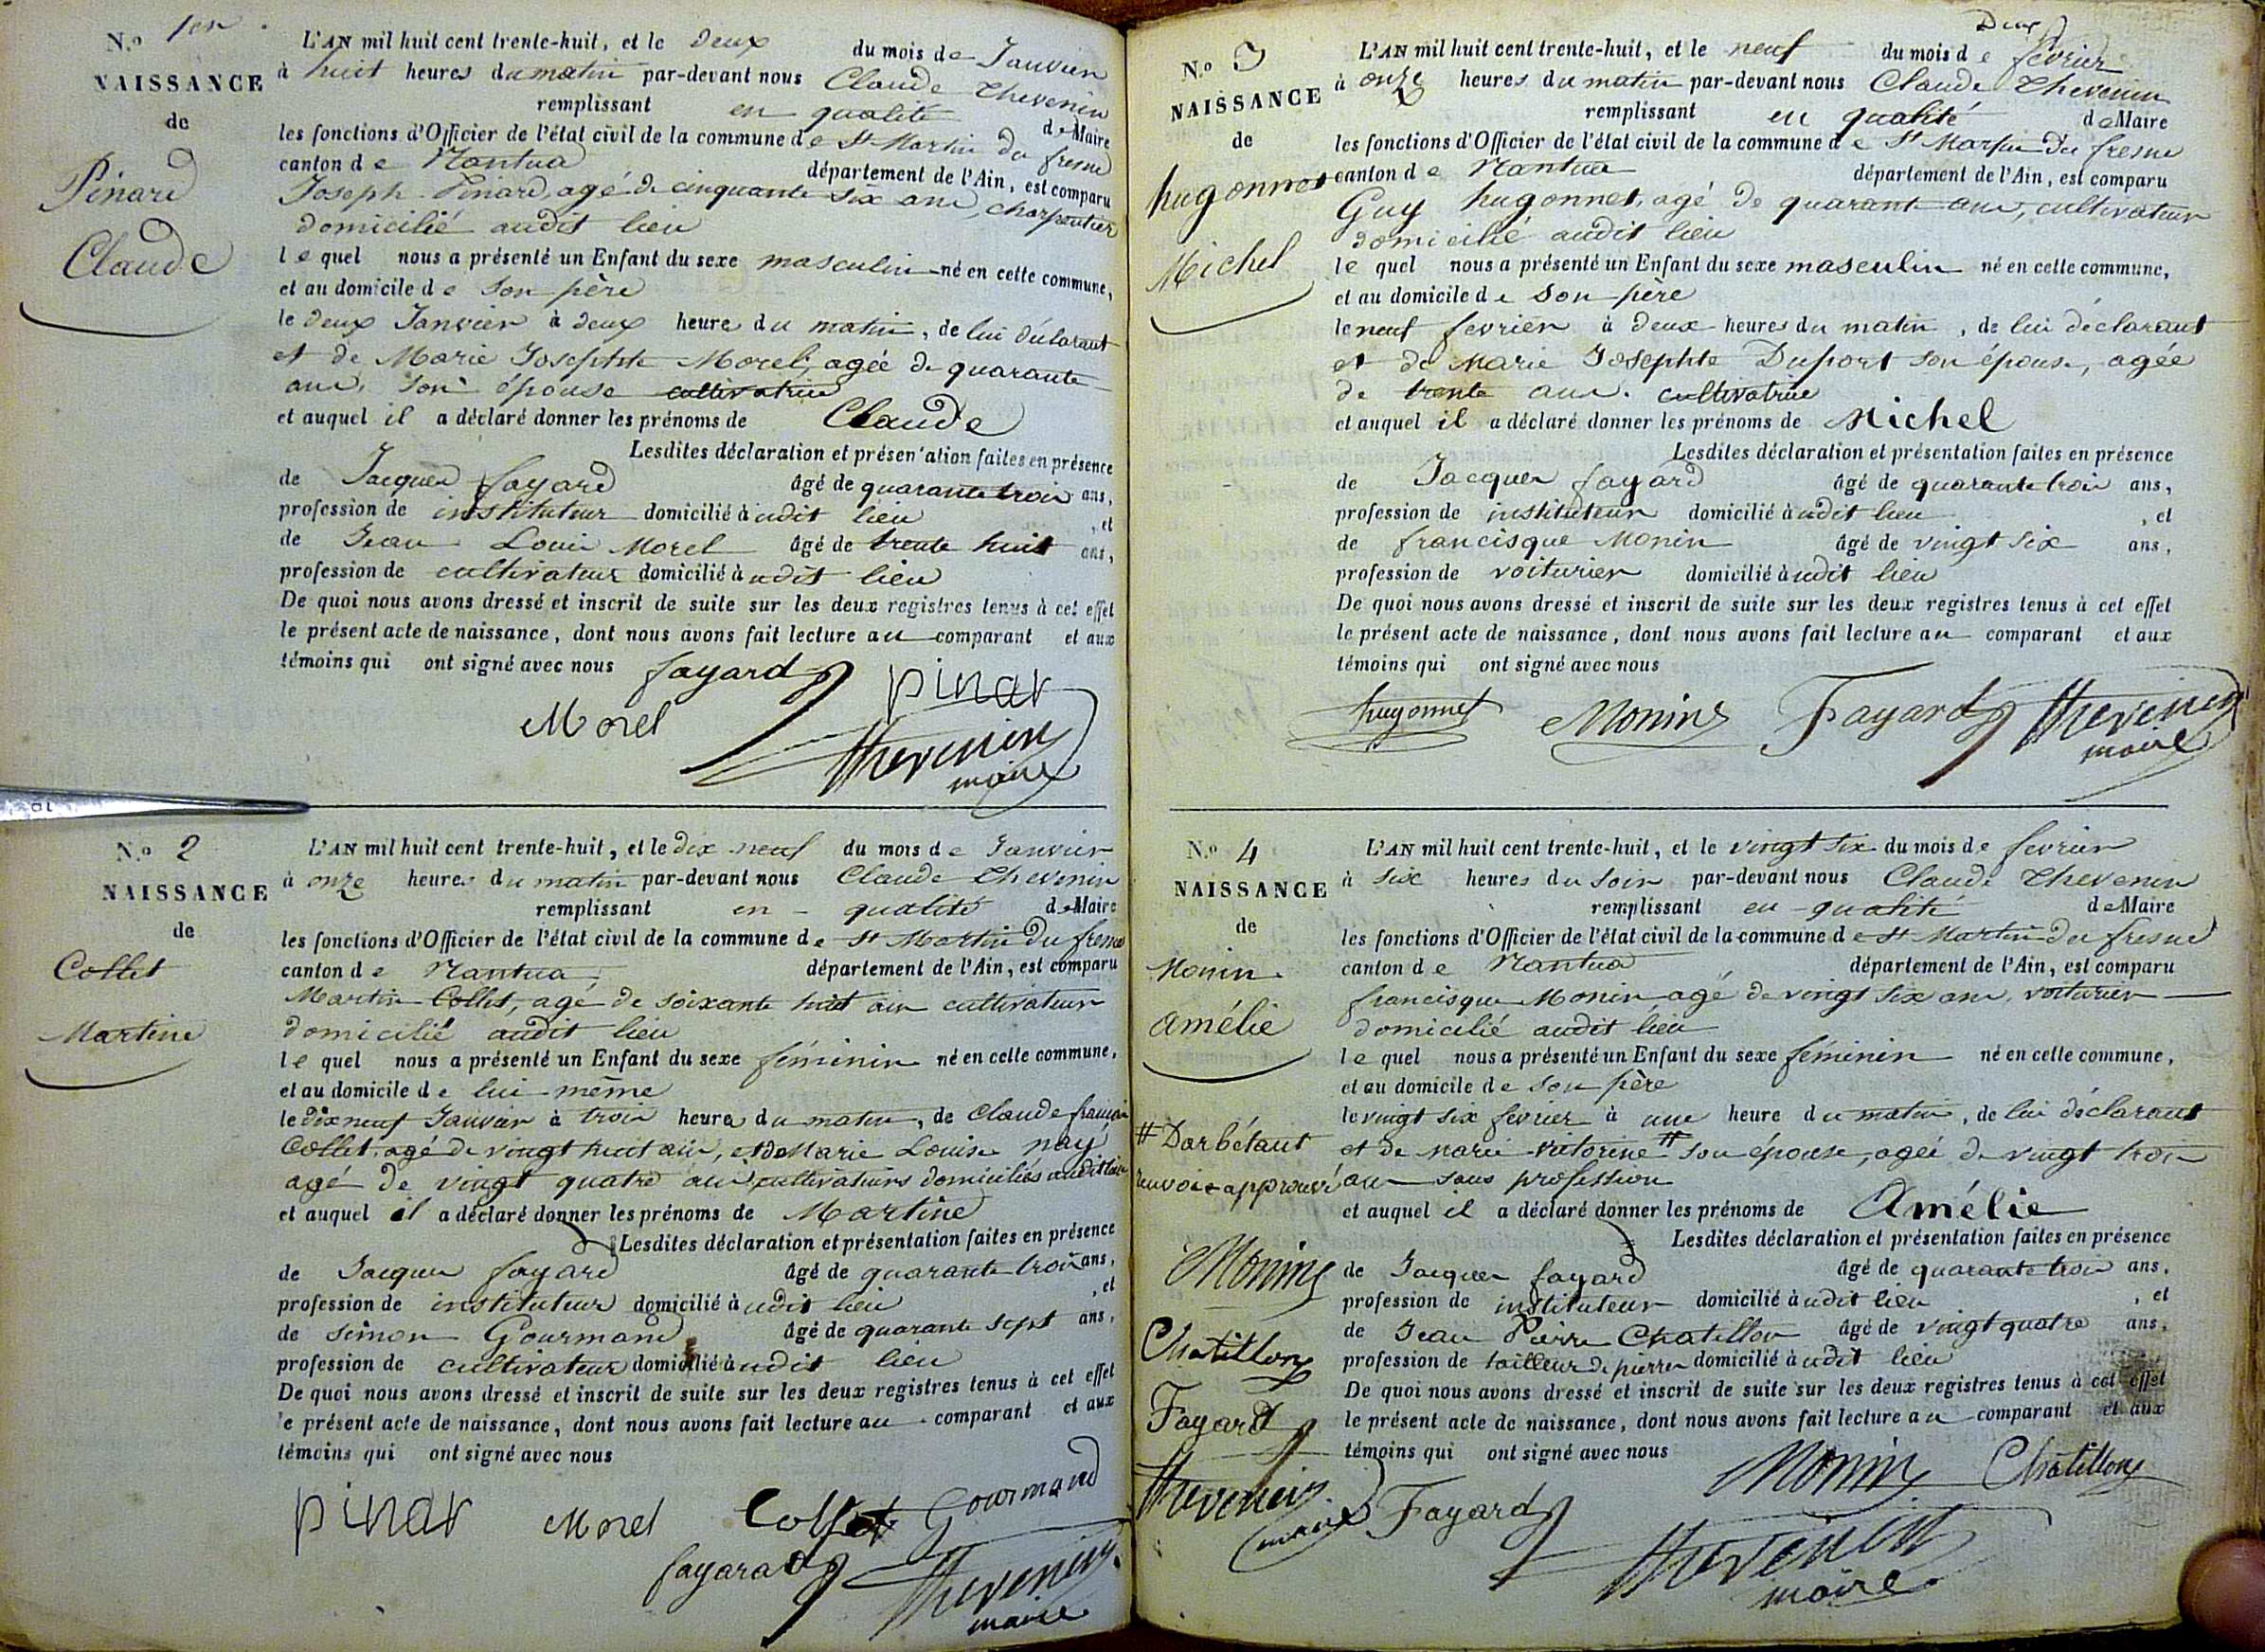 N.º 1er
NAISSANCE
de
Pinard
Claude
L'AN mil huit cent trente-huit, et le deux du mois de Janvier
à huit heures du matin par-devant nous Claude Thevenin
remplissant en qualité de Maire
les fonctions d'Officier de l'état civil de la commune de St Martin du fresne
canton de Nantua département de l'Ain, est comparu
Joseph Pinard, agé de cinquante six ans, charpentier
domicilié audit lieu
lequel nous a présenté un Enfant du sexe masculin né en cette commune,
et au domicile de son père
le deux Janvier à deux heures du matin, de lui déclarant
et de Marie Josephte Morel, agée de quarante
ans, son épouse cultivatrice
et auquel il a déclaré donner les prénoms de Claude
Lesdites déclaration et présentation faites en présence
de Jacques fayard âgé de quarante trois ans,
profession de instituteur domicilié audit lieu, et
de Jean Louis Morel âgé de trente huit ans,
profession de cultivateur domicilié audit lieu
De quoi nous avons dressé et inscrit de suite sur les deux registres tenus à cet effet
le présent acte de naissance, dont nous avons fait lecture au comparant et aux
témoins qui ont signé avec nous fayard pinar
Morel
Thevenin
maire
N.º 2
NAISSANCE
de
Collet
Martine
L'AN mil huit cent trente-huit, et le dix neuf du mois de Janvier
à onze heures du matin par-devant nous Claude Thevenin
remplissant en qualité de Maire
les fonctions d'Officier de l'état civil de la commune de St Martin Du fresne
canton de Nantua département de l'Ain, est comparu
Martin Collet, agé de soixante huit ans cultivateur
domicilié audit lieu
lequel nous a présenté un Enfant du sexe féminin né en cette commune,
et au domicile de lui-même
le dix neuf Janvier à trois heures du matin, de Claude françois
Collet agé de vingt huit ans, et de Marie Louise nayé
agé de vingt quatre ans cultivateurs domiciliés audit lieu
et auquel il a déclaré donner les prénoms de Martine
Lesdites déclaration et présentation faites en présence
de Jacques fayard âgé de quarante trois ans,
profession de instituteur domicilié audit lieu, et
de simon Gourmand âgé de quarante sept ans,
profession de cultivateur domicilié audit lieu
De quoi nous avons dressé et inscrit de suite sur les deux registres tenus à cet effet
le présent acte de naissance, dont nous avons fait lecture au comparant et aux
témoins qui ont signé avec nous
pinar Morel Collet Gourmand
fayard Thevenin
maire
Deux
N.º 3
NAISSANCE
de
hugonnet
Michel
L'AN mil huit cent trente-huit, et le neuf du mois de fevrier
à onze heures du matin par-devant nous Claude Thevenin
remplissant en qualité de Maire
les fonctions d'Officier de l'état civil de la commune de St Martin Du fresne
canton de Nantua département de l'Ain, est comparu
Guy hugonnet, agé de quarante ans, cultivateur
domicilié audit lieu
lequel nous a présenté un Enfant du sexe masculin né en cette commune,
et au domicile de son père
le neuf fevrier à deux heures du matin, de lui déclarant
et de Marie Josephte Duport son épouse, agée
de trente ans. cultivatrice
et auquel il a déclaré donner les prénoms de Michel
Lesdites déclaration et présentation faites en présence
de Jacques fayard âgé de quarante trois ans,
profession de instituteur domicilié audit lieu, et
de francisque Monin âgé de vingt six ans,
profession de voiturier domicilié audit lieu
De quoi nous avons dressé et inscrit de suite sur les deux registres tenus à cet effet
le présent acte de naissance, dont nous avons fait lecture au comparant et aux
témoins qui ont signé avec nous
hugonnet Monin Fayard Thevenin
maire
N.º 4
NAISSANCE
de
Monin
Amélie
# Darbétant
renvoi approuvé
Monin
Chatillon
Fayard
Thevenin
maire
L'AN mil huit cent trente-huit, et le vingt six du mois de fevrier
à six heures du soir par-devant nous Claude Thevenin
remplissant en qualité de Maire
les fonctions d'Officier de l'état civil de la commune de St Martin du fresne
canton de Nantua département de l'Ain, est comparu
francisque Monin agé de vingt six ans, voiturier
domicilié audit lieu
lequel nous a présenté un Enfant du sexe féminin né en cette commune,
et au domicile de son père
le vingt six fevrier à une heure du matin, de lui déclarant
et de marie victorine # son épouse, agée de vingt trois
ans sans profession
et auquel il a déclaré donner les prénoms de Amélie
Lesdites déclaration et présentation faites en présence
de Jacques fayard âgé de quarante trois ans,
profession de instituteur domicilié audit lieu, et
de Jean Pierre Chatillon âgé de vingt quatre ans,
profession de tailleur de pierres domicilié audit lieu
De quoi nous avons dressé et inscrit de suite sur les deux registres tenus à cet effet
le présent acte de naissance, dont nous avons fait lecture au comparant et aux
témoins qui ont signé avec nous
Monin Chatillon
Fayard Thevenin
maire